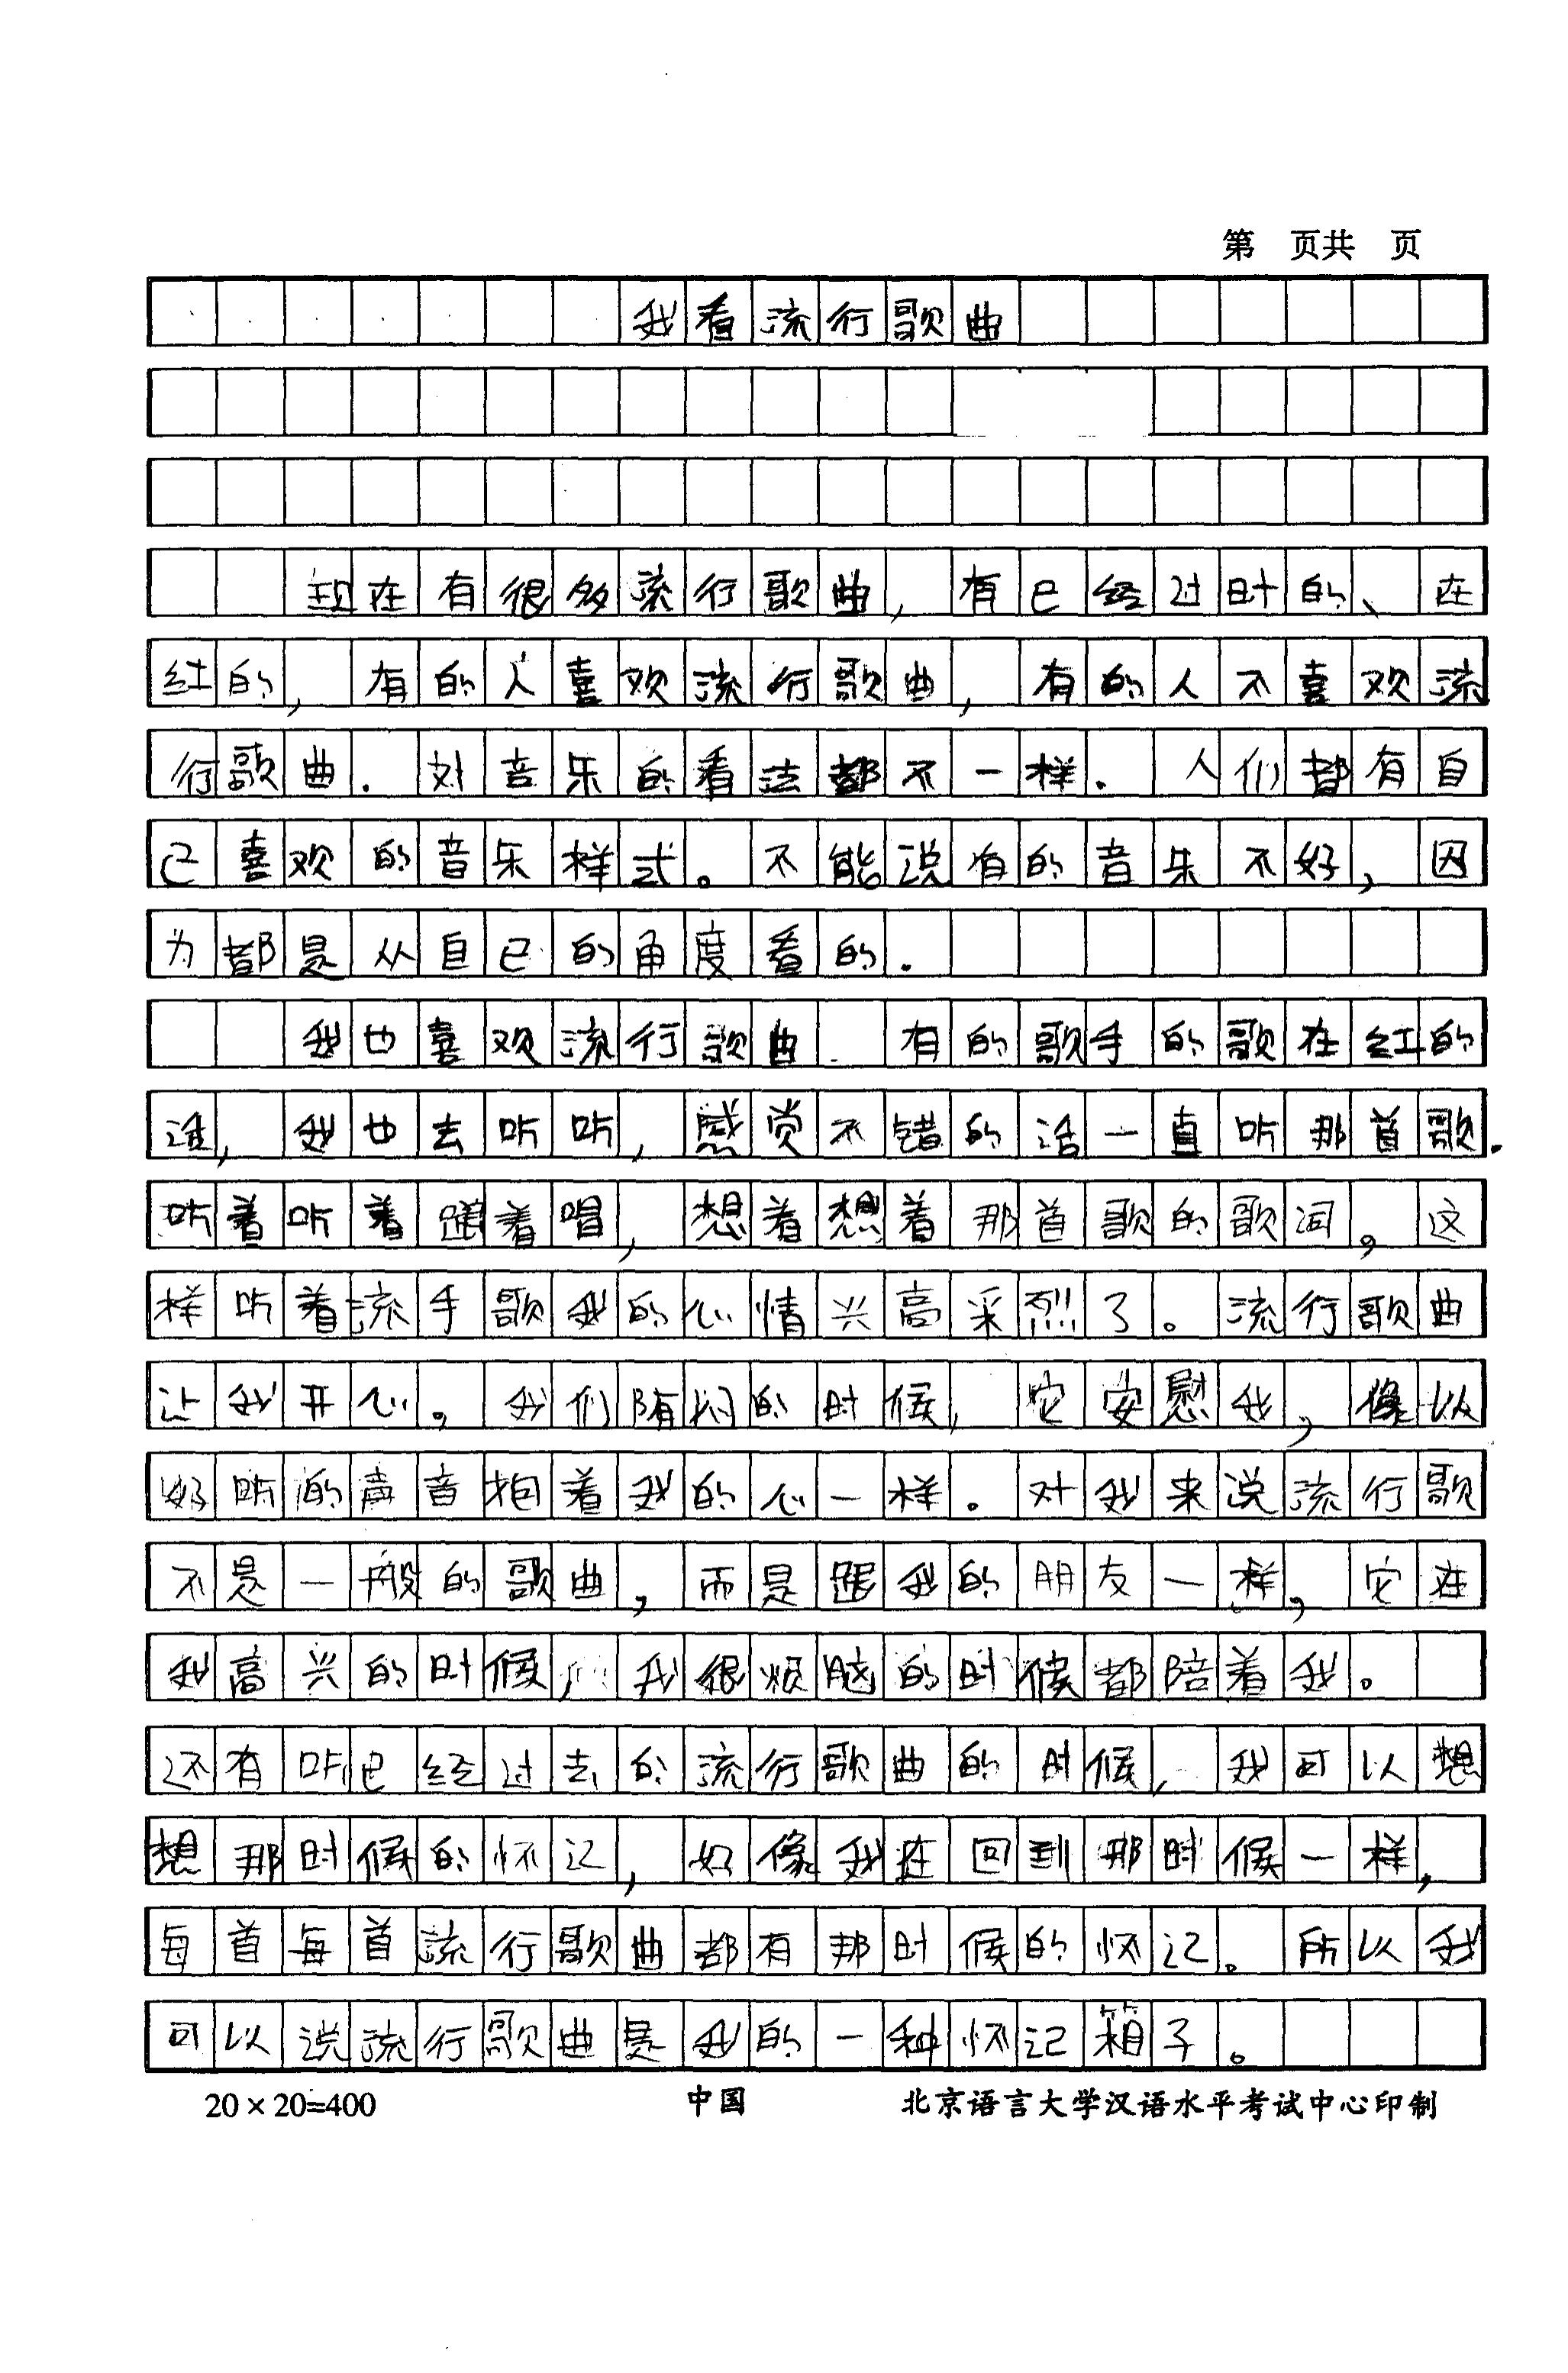 第 页共 页
我看流行歌曲
现在有很多流行歌曲,有已经过时的、在
红的,有的人喜欢流行歌曲,有的人不喜欢流
行歌曲.对音乐的看法都不一样.人们都有自
己喜欢的音乐样式。不能说有的音乐不好,因
为都是从自己的角度看的.
我也喜欢流行歌曲.有的歌手的歌在红的
话,我也去听听,感觉不错的话一直听那首歌.
听着听着跟着唱,想着想着那首歌的歌词。这
样听着流手歌我的心情兴高采烈了。流行歌曲
让我开心。我们郁闷的时候,它安慰我,像以
好听的声音抱着我的心一样。对我来说流行歌
不是一般的歌曲,而是跟我的朋友一样,它在
我高兴的时候,我很烦脑的时候都陪着我。
还有听已经过去的流行歌曲的时候,我可以想
想那时候的怀记,好像我在回到那时候一样,
每首每首流行歌曲都有那时候的怀记。所以我
可以说流行歌曲是我的一种怀记箱子。
20×20=400 中国 北京语言大学汉语水平考试中心印制